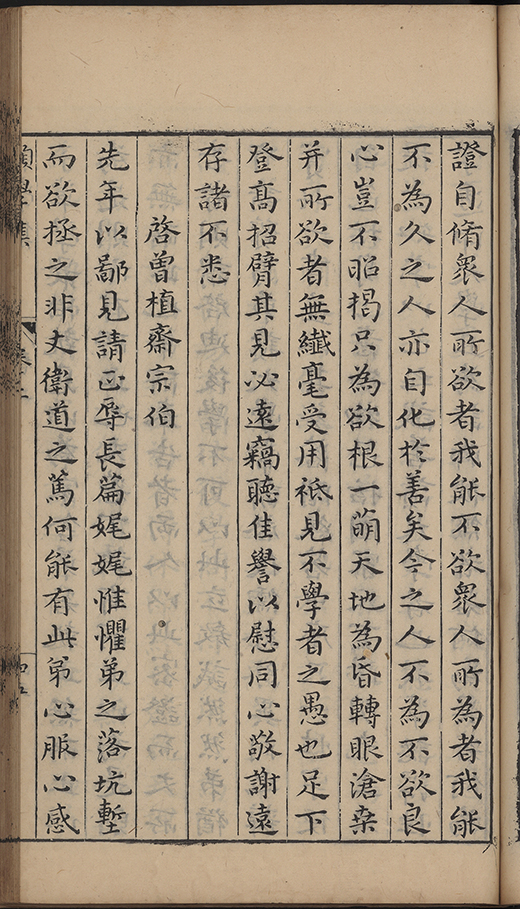 證自脩衆人所欲者我能不欲衆人所為者我能
不為久之人亦自化於善矣今之人不為不欲良
心豈不昭揭只為欲根一萌天地為昏轉眼滄桒
并所欲者無纖毫受用祗見不學者之愚也足下
登髙招臂其見必遠竊聽佳譽以慰同心敬謝遠
存諸不悉
啓曽植齋宗伯
先年以鄙見請正辱長篇娓娓惟懼弟之落坑塹
而欲拯之非丈衛道之篤何能有此弟心服心感
學集